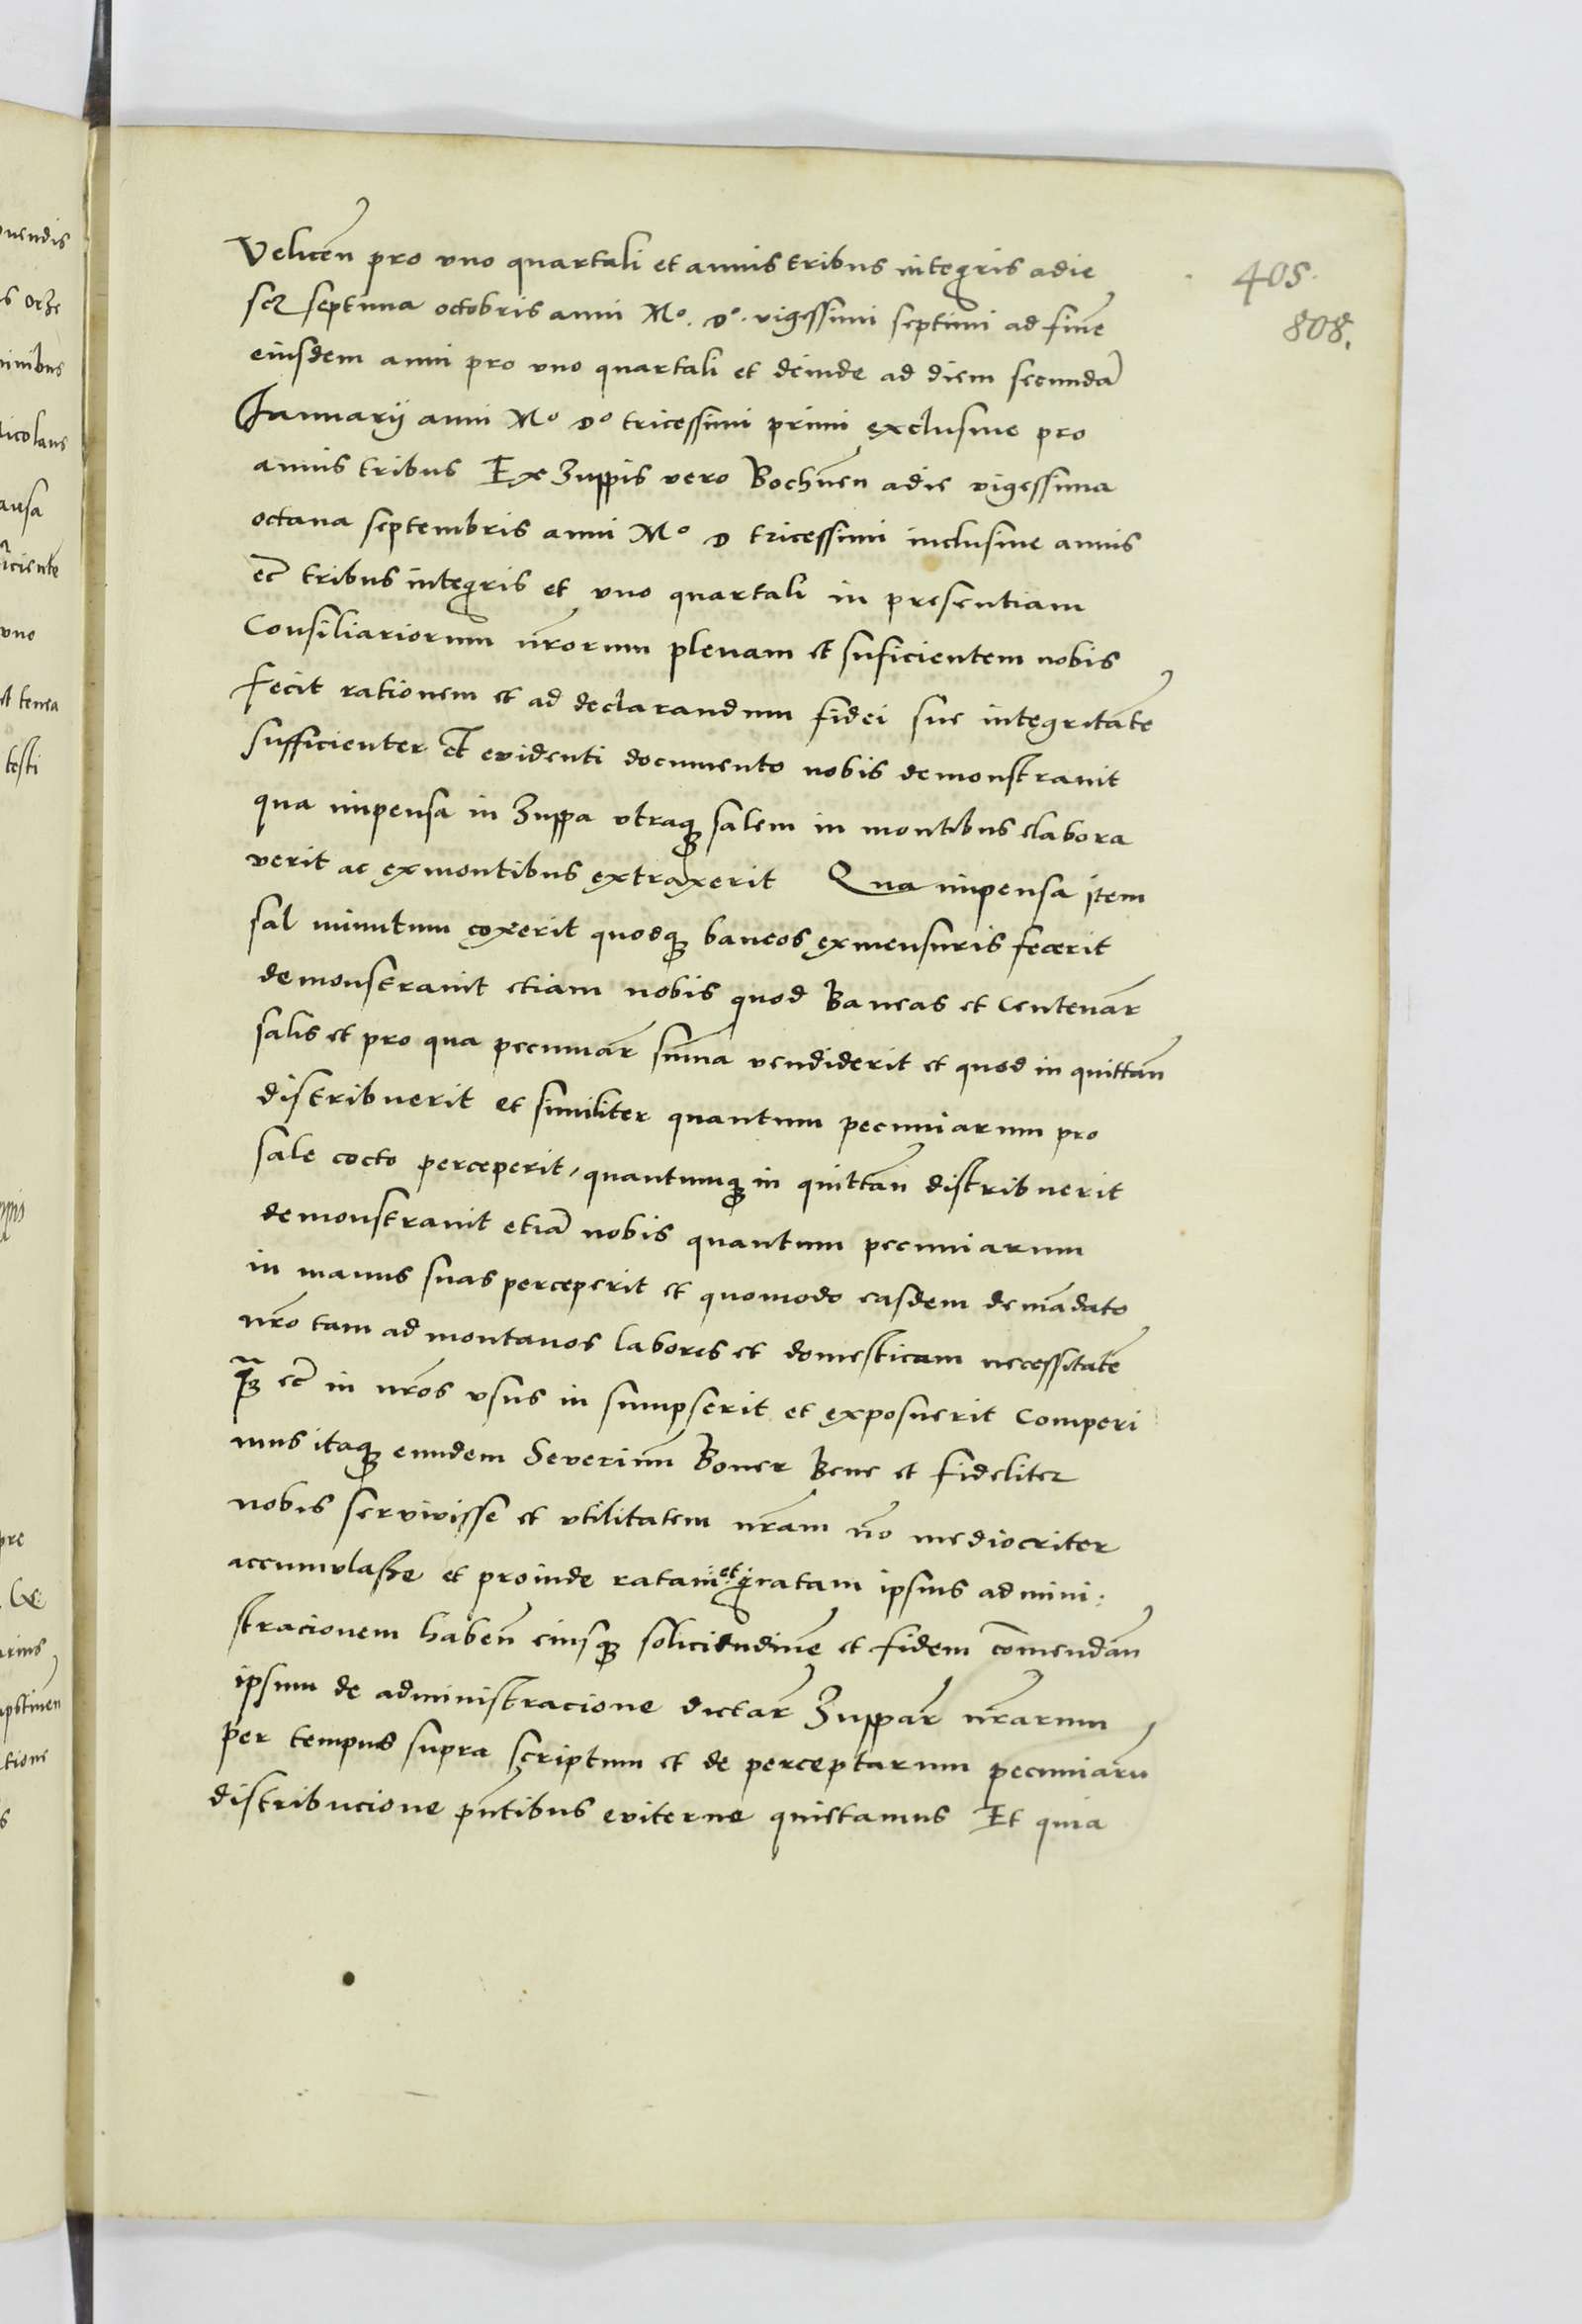 405.
808.
Velicen̄ pro vno quartali et annis tribus integris adie
scȝ septima octobris anni Mº. Dº. vigessimi septimi ad finē
eiusdem anni pro vno quartali et deinde ad diem secundā
Januarij anni Mº Dº tricessimi primi exclusiue pro
annis tribus Ex Zuppis vero Bochnen̄ adie vigessima
octaua septembris anni Mº D tricessimi inclusiue annis
ec̄ tribus integris et vno quartali in presentiam
Consiliariorum nr̄orum plenam et suficientem nobis
fecit rationem et ad declarandum fidei sue integritatē
sufficienter Et euidenti documento nobis demonstrauit
qua impensa in Zuppa vtraqȝ salem in montibus elabora
verit ac exmontibus extraxerit Qua impensa item
sal minutum coxerit quodqȝ bancos exmensuris fecerit
demonstrauit etiam nobis quod Bancas et Centenar̄
salis et pro qua pecuniar̄ sum̄a vendiderit et quod in quittan̄
distribuerit et similiter quantum pecuniarum pro
sale cocto perceperit, quantumqȝ in quittan̄ distribuerit
demonstrauit etiā nobis quantum pecuniarum
in manus suas perceperit et quomodo easdem demādato
nr̄o tam ad montanos labores et domesticam necessitatē
qȝ ec̄ in nr̄os vsus in sumpserit et exposuerit Comperi
mus itaqȝ eundem Seuerinū Boner Bene et fideliter
nobis servivisse et vtilitatem nr̄am nō mediocriter
accumulasse et proinde ratam et gratam ipsius admini:
stracionem haben̄ eiusqȝ solicitudinē et fidem com̄endan̄
ipsum de administracione dictar̄ Zuppar̄ nr̄arum
per tempus supra scriptum et de perceptarum pecuniarū
distribucione pn̄tibus eviterne quietamus Et quia